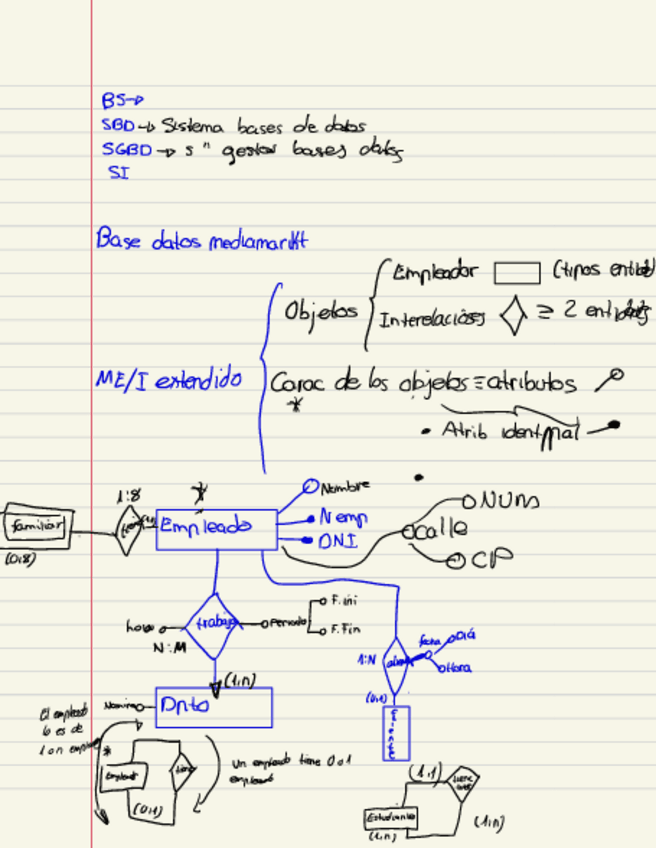 BS→
SBD → Sistema bases de datos
SGBD → s " gestor bases datos
SI
Base datos mediamarkt
Objetos
Empleador (tipos entidad
Interelaciones ≥ 2 entidades
ME/I extendido
Carac de los objetos ≡ atributos
*
• Atrib ident/pal
1:8
Nombre
familiar
Empleado
N emp
DNI
(0,8)
calle
Num
CP
trabaja
hora
Periodo
F. ini
F. Fin
N:M
1:N
fecha
Diá
Hora
(1,n)
(0,1)
Dnto
El empleado
lo es de
1 o n emplea
*
tiene
(0,1)
Un empleado tiene 0 o 1
empleado
(1,1)
Estudiante
(1,n)
(1,n)